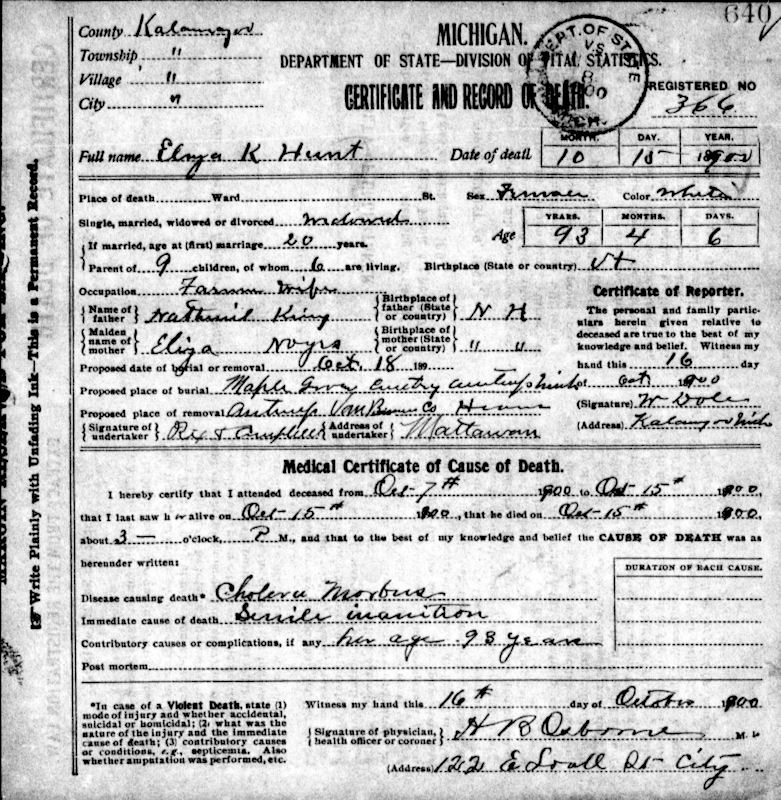 640
County Kalamazoo
Township "
Village "
City "
MICHIGAN.
DEPARTMENT OF STATE—DIVISION OF VITAL STATISTICS.
CERTIFICATE AND RECORD OF DEATH.
DEPT. OF STATE
REGISTERED NO
366
Full name Eliza K Hunt
Date of death
MONTH. DAY. YEAR.
10 15 1900
Place of death Ward St. Sex Female Color White
Single, married, widowed or divorced Widowed
Age
YEARS. MONTHS. DAYS.
93 4 6
If married, age at (first) marriage 20 years.
Parent of 9 children, of whom 6 are living. Birthplace (State or country) Vt
Occupation Farmer Wife
Name of father Nathaniel King
Birthplace of father (State or country) N H
Maiden name of mother Eliza Noyes
Birthplace of mother (State or country) " "
Proposed date of burial or removal Oct. 18 189
Proposed place of burial Maple Grove
Proposed place of removal Van Buren Co
Signature of undertaker Rix & Campbell Address of undertaker Mattawan
Certificate of Reporter.
The personal and family partic-
ulars herein given relative to
deceased are true to the best of my
knowledge and belief. Witness my
hand this 16 day
of Oct. 1900
(Signature) W Dole
(Address) Kalamazoo Mich
Medical Certificate of Cause of Death.
I hereby certify that I attended deceased from Oct-7th 1900 to Oct-15th 1900,
that I last saw her alive on Oct-15th 1900, that he died on Oct-15th 1900,
about 3— o'clock, P M., and that to the best of my knowledge and belief the CAUSE OF DEATH was as
hereunder written:
DURATION OF EACH CAUSE.
Disease causing death* Cholera Morbus
Immediate cause of death Senile inanition
Contributory causes or complications, if any her age 93 years
Post mortem
*In case of a Violent Death, state (1)
mode of injury and whether accidental,
suicidal or homicidal; (2) what was the
nature of the injury and the immediate
cause of death; (3) contributory causes
or conditions, e.g., septicemia. Also
whether amputation was performed, etc.
Witness my hand this 16th day of October 1900
Signature of physician, health officer or coroner H B Osborne M. D.
(Address) 122 E Lovell St City
Write Plainly with Unfading Ink—This is a Permanent Record.